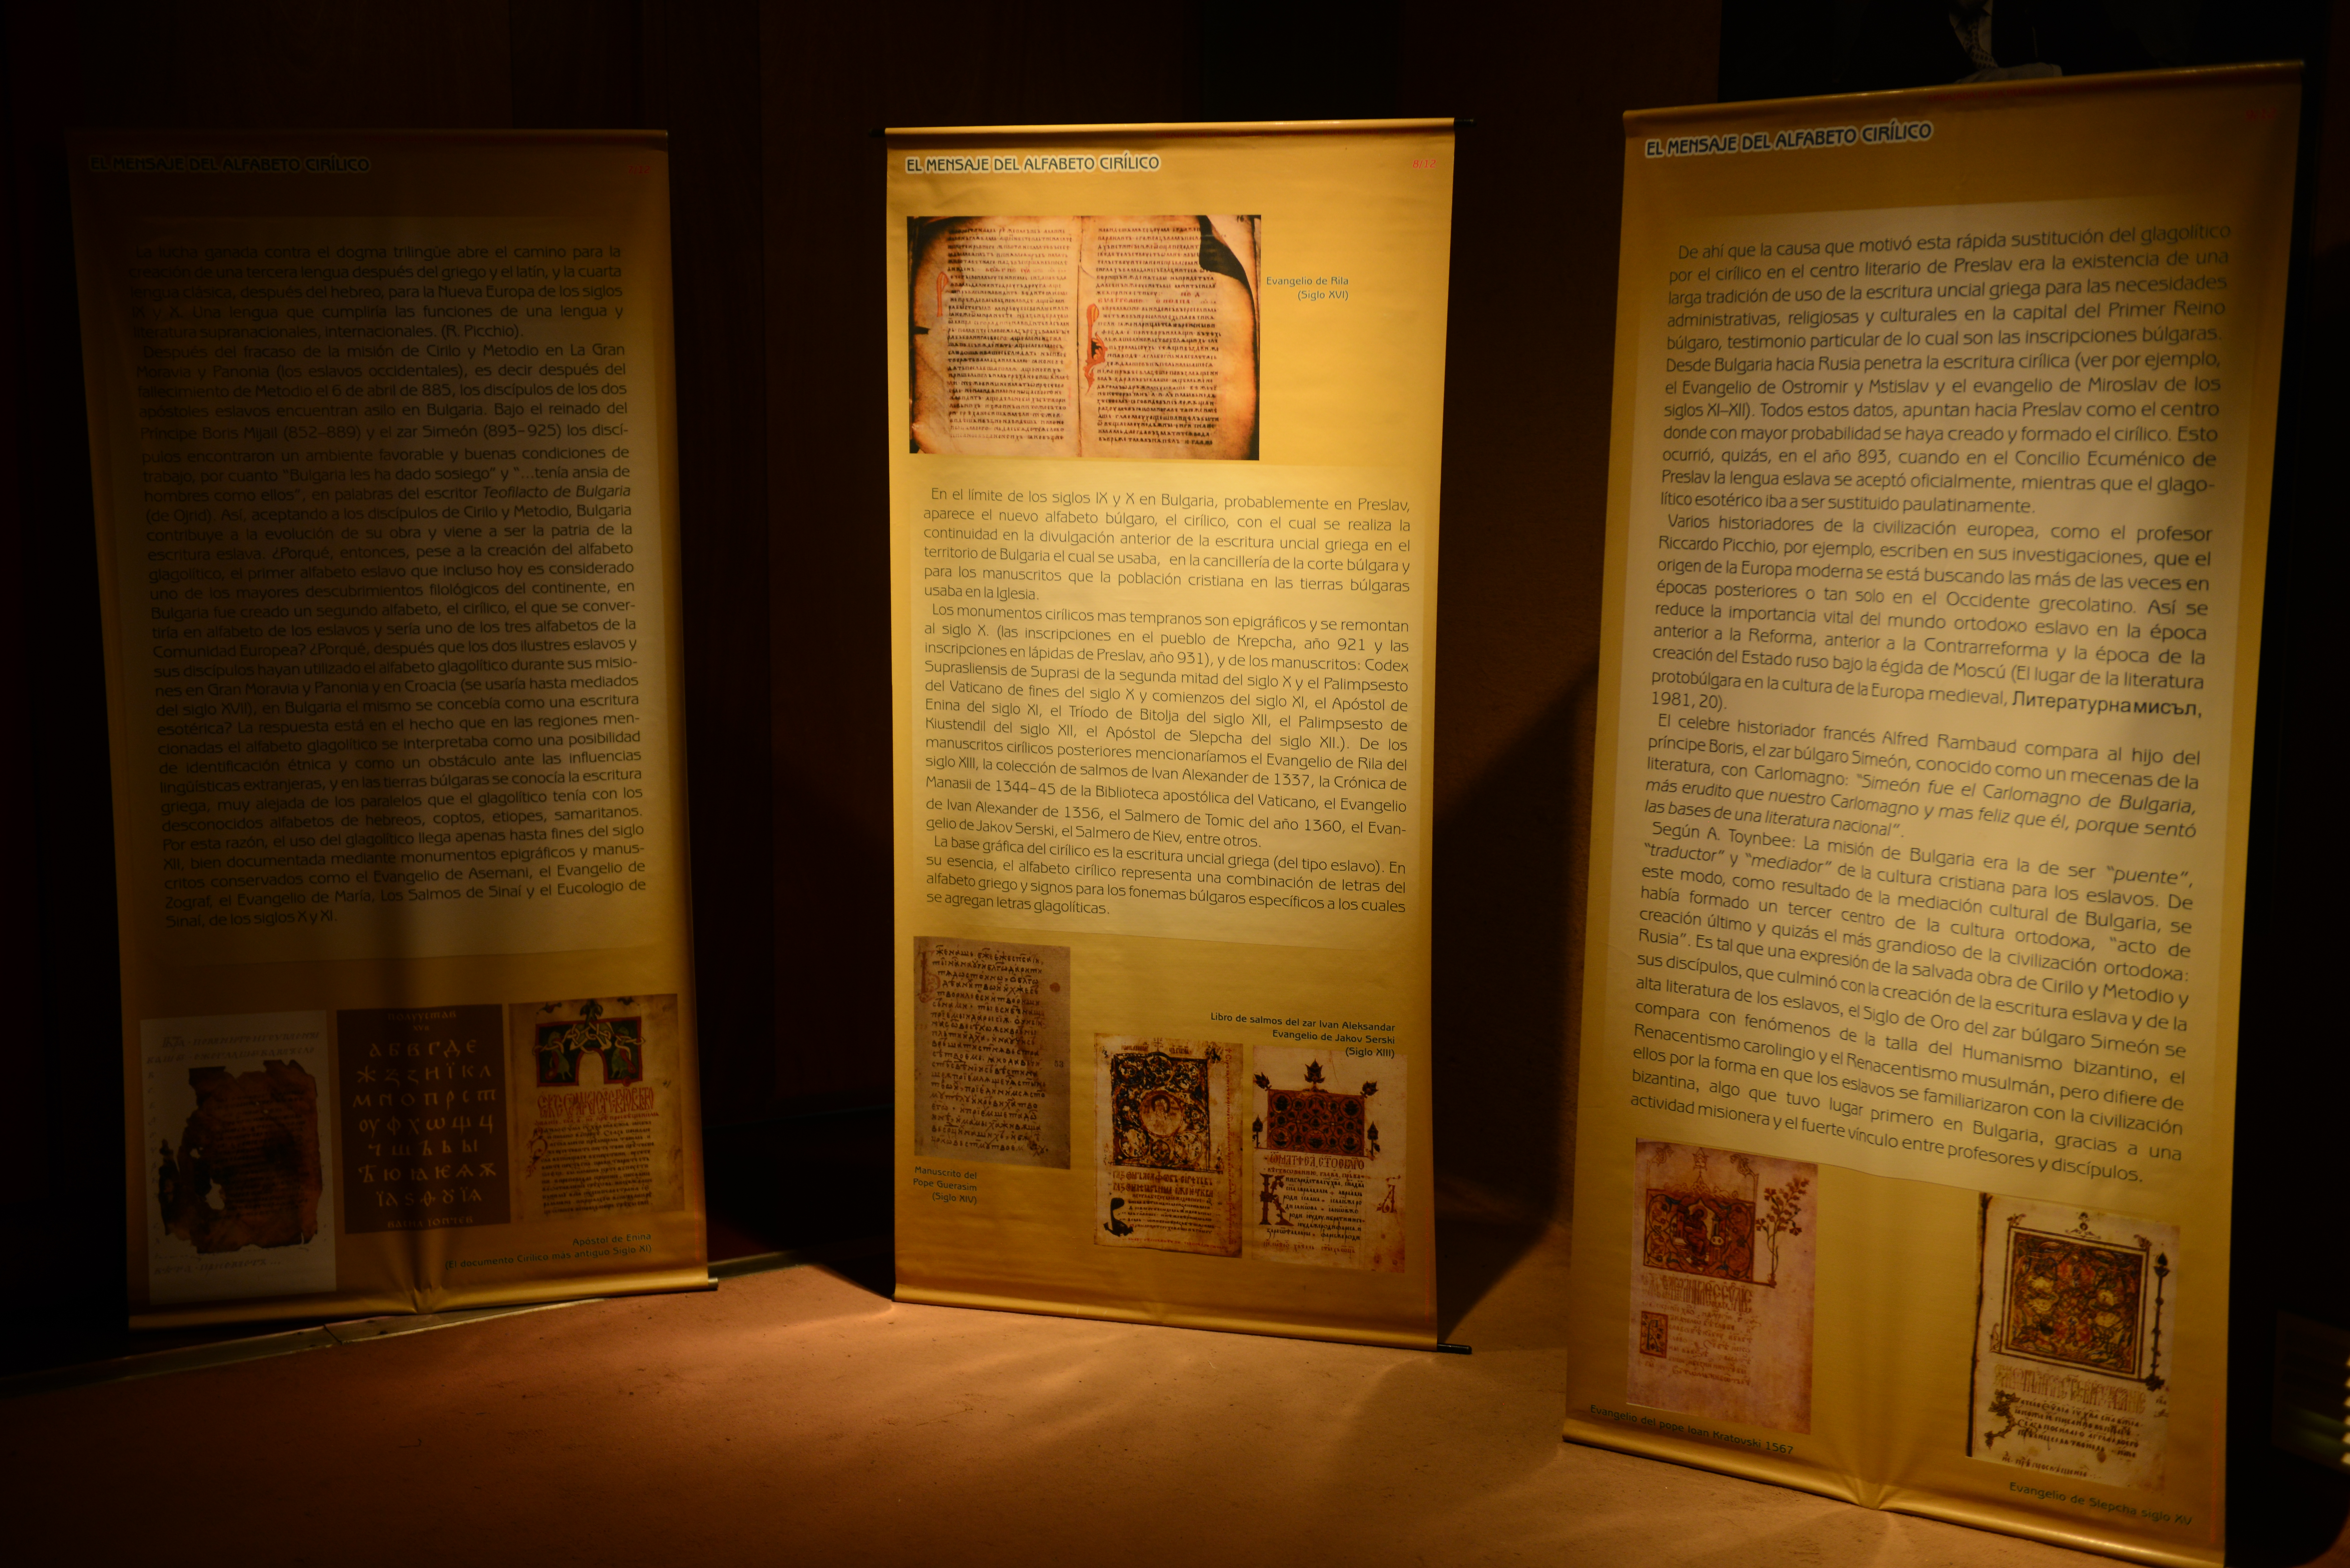 EL MENSAJE DEL ALFABETO CIRÍLICO
La lucha ganada contra el dogma trilingüe abre el camino para la
creación de una tercera lengua después del griego y el latín, y la cuarta
lengua clásica, después del hebreo, para la Nueva Europa de los siglos
IX y X. Una lengua que cumpliría las funciones de una lengua y
literatura supranacionales, internacionales. (R. Picchio).
Después del fracaso de la misión de Cirilo y Metodio en La Gran
Moravia y Panonia (los eslavos occidentales), es decir después del
fallecimiento de Metodio el 6 de abril de 885, los discípulos de los dos
apóstoles eslavos encuentran asilo en Bulgaria. Bajo el reinado del
Príncipe Boris Mijail (852–889) y el zar Simeón (893–925) los discí-
pulos encontraron un ambiente favorable y buenas condiciones de
trabajo, por cuanto "Bulgaria les ha dado sosiego" y "...tenía ansia de
hombres como ellos", en palabras del escritor Teofilacto de Bulgaria
(de Ojrid). Así, aceptando a los discípulos de Cirilo y Metodio, Bulgaria
contribuye a la evolución de su obra y viene a ser la patria de la
escritura eslava. ¿Porqué, entonces, pese a la creación del alfabeto
glagolítico, el primer alfabeto eslavo que incluso hoy es considerado
uno de los mayores descubrimientos filológicos del continente, en
Bulgaria fue creado un segundo alfabeto, el cirílico, el que se conver-
tiría en alfabeto de los eslavos y sería uno de los tres alfabetos de la
Comunidad Europea? ¿Porqué, después que los dos ilustres eslavos y
sus discípulos hayan utilizado el alfabeto glagolítico durante sus misio-
nes en Gran Moravia y Panonia y en Croacia (se usaría hasta mediados
del siglo XVII), en Bulgaria el mismo se concebía como una escritura
esotérica? La respuesta está en el hecho que en las regiones men-
cionadas el alfabeto glagolítico se interpretaba como una posibilidad
de identificación étnica y como un obstáculo ante las influencias
lingüísticas extranjeras, y en las tierras búlgaras se conocía la escritura
griega, muy alejada de los paralelos que el glagolítico tenía con los
desconocidos alfabetos de hebreos, coptos, etíopes, samaritanos.
Por esta razón, el uso del glagolítico llega apenas hasta fines del siglo
XII, bien documentada mediante monumentos epigráficos y manus-
critos conservados como el Evangelio de Asemani, el Evangelio de
Zograf, el Evangelio de María, Los Salmos de Sinaí y el Eucologio de
Sinaí, de los siglos X y XI.
Apóstol de Enina
(El documento Cirílico más antiguo Siglo XI)
EL MENSAJE DEL ALFABETO CIRÍLICO
8/12
Evangelio de Rila
(Siglo XVI)
En el límite de los siglos IX y X en Bulgaria, probablemente en Preslav,
aparece el nuevo alfabeto búlgaro, el cirílico, con el cual se realiza la
continuidad en la divulgación anterior de la escritura uncial griega en el
territorio de Bulgaria el cual se usaba, en la cancillería de la corte búlgara y
para los manuscritos que la población cristiana en las tierras búlgaras
usaba en la Iglesia.
Los monumentos cirílicos mas tempranos son epigráficos y se remontan
al siglo X. (las inscripciones en el pueblo de Krepcha, año 921 y las
inscripciones en lápidas de Preslav, año 931), y de los manuscritos: Codex
Suprasliensis de Suprasi de la segunda mitad del siglo X y el Palimpsesto
del Vaticano de fines del siglo X y comienzos del siglo XI, el Apóstol de
Enina del siglo XI, el Tríodo de Bitolja del siglo XII, el Palimpsesto de
Kiustendil del siglo XII, el Apóstol de Slepcha del siglo XII.). De los
manuscritos cirílicos posteriores mencionaríamos el Evangelio de Rila del
siglo XIII, la colección de salmos de Ivan Alexander de 1337, la Crónica de
Manasii de 1344–45 de la Biblioteca apostólica del Vaticano, el Evangelio
de Ivan Alexander de 1356, el Salmero de Tomic del año 1360, el Evan-
gelio de Jakov Serski, el Salmero de Kiev, entre otros.
La base gráfica del cirílico es la escritura uncial griega (del tipo eslavo). En
su esencia, el alfabeto cirílico representa una combinación de letras del
alfabeto griego y signos para los fonemas búlgaros específicos a los cuales
se agregan letras glagolíticas.
Manuscrito del
Pope Guerasim
(Siglo XIV)
Libro de salmos del zar Ivan Aleksandar
Evangelio de Jakov Serski
(Siglo XIII)
EL MENSAJE DEL ALFABETO CIRÍLICO
De ahí que la causa que motivó esta rápida sustitución del glagolítico
por el cirílico en el centro literario de Preslav era la existencia de una
larga tradición de uso de la escritura uncial griega para las necesidades
administrativas, religiosas y culturales en la capital del Primer Reino
búlgaro, testimonio particular de lo cual son las inscripciones búlgaras.
Desde Bulgaria hacia Rusia penetra la escritura cirílica (ver por ejemplo,
el Evangelio de Ostromir y Mstislav y el evangelio de Miroslav de los
siglos XI–XII). Todos estos datos, apuntan hacia Preslav como el centro
donde con mayor probabilidad se haya creado y formado el cirílico. Esto
ocurrió, quizás, en el año 893, cuando en el Concilio Ecuménico de
Preslav la lengua eslava se aceptó oficialmente, mientras que el glago-
lítico esotérico iba a ser sustituido paulatinamente.
Varios historiadores de la civilización europea, como el profesor
Riccardo Picchio, por ejemplo, escriben en sus investigaciones, que el
origen de la Europa moderna se está buscando las más de las veces en
épocas posteriores o tan solo en el Occidente grecolatino. Así se
reduce la importancia vital del mundo ortodoxo eslavo en la época
anterior a la Reforma, anterior a la Contrarreforma y la época de la
creación del Estado ruso bajo la égida de Moscú (El lugar de la literatura
protobúlgara en la cultura de la Europa medieval, Литературна мисъл,
1981, 20).
El celebre historiador francés Alfred Rambaud compara al hijo del
príncipe Boris, el zar búlgaro Simeón, conocido como un mecenas de la
literatura, con Carlomagno: "Simeón fue el Carlomagno de Bulgaria,
más erudito que nuestro Carlomagno y mas feliz que él, porque sentó
las bases de una literatura nacional".
Según A. Toynbee: La misión de Bulgaria era la de ser "puente",
"traductor" y "mediador" de la cultura cristiana para los eslavos. De
este modo, como resultado de la mediación cultural de Bulgaria, se
había formado un tercer centro de la cultura ortodoxa, "acto de
creación último y quizás el más grandioso de la civilización ortodoxa:
Rusia". Es tal que una expresión de la salvada obra de Cirilo y Metodio y
sus discípulos, que culminó con la creación de la escritura eslava y de la
alta literatura de los eslavos, el Siglo de Oro del zar búlgaro Simeón se
compara con fenómenos de la talla del Humanismo bizantino, el
Renacentismo carolingio y el Renacentismo musulmán, pero difiere de
ellos por la forma en que los eslavos se familiarizaron con la civilización
bizantina, algo que tuvo lugar primero en Bulgaria, gracias a una
actividad misionera y el fuerte vínculo entre profesores y discípulos.
Evangelio del pope Ioan Kratovski 1567
Evangelio de Slepcha siglo XV